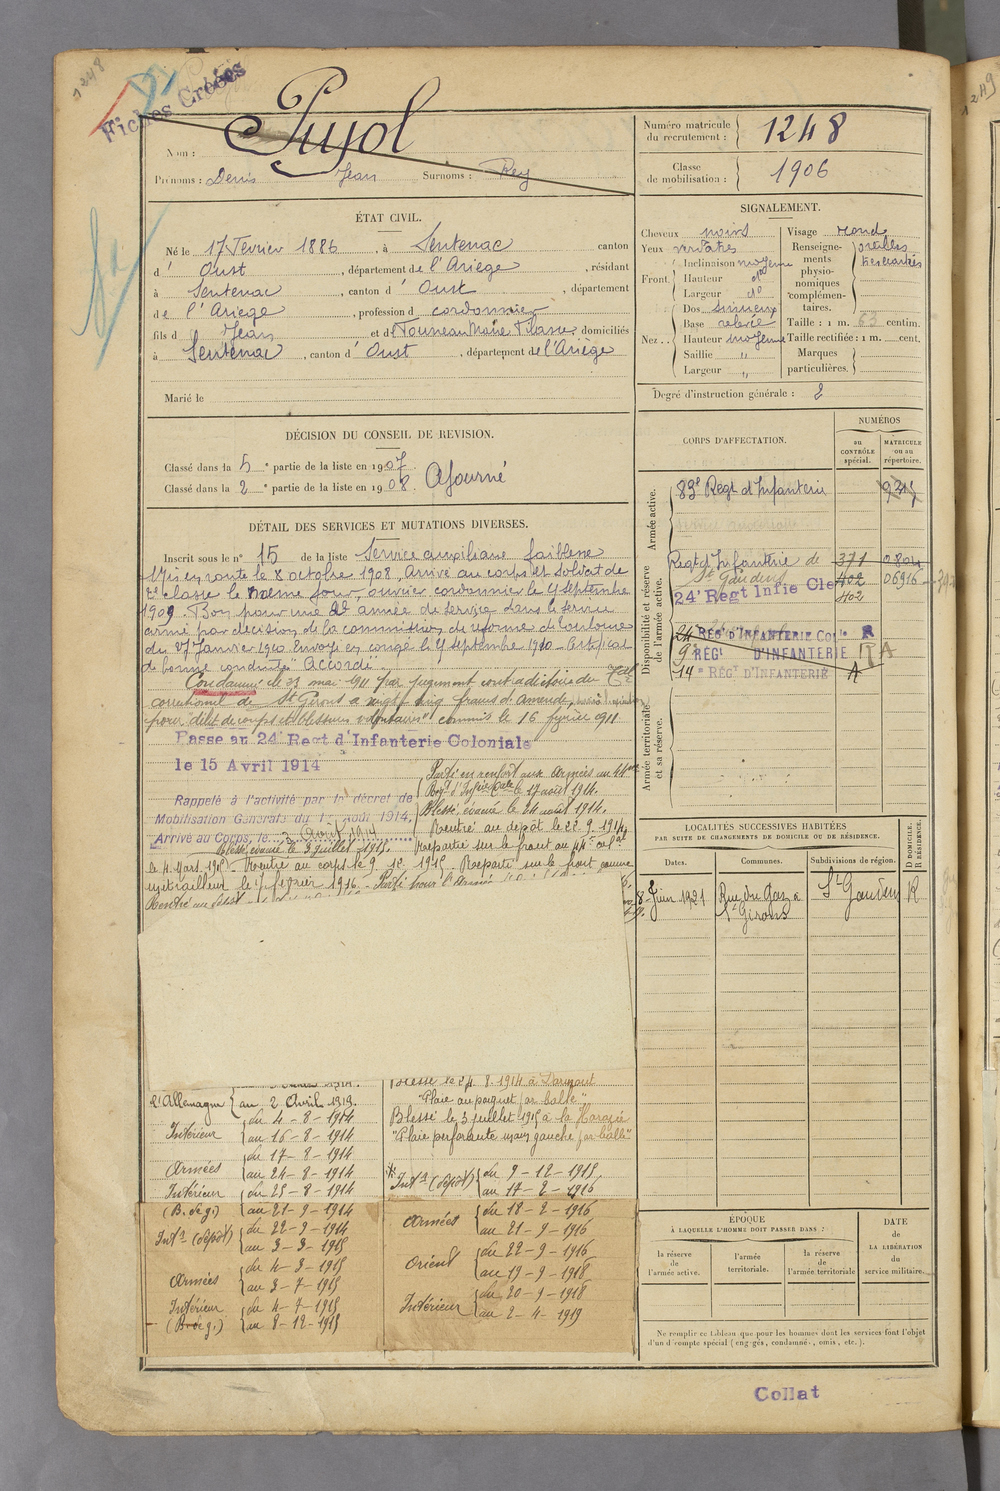 1248
Fiches Créées
Nom : Pujol
Prénoms : Denis Jean Surnoms : Rey
Numéro matricule du recrutement : 1248
Classe de mobilisation : 1906
ÉTAT CIVIL.
Né le 17 Fevrier 1886, à Sentenac canton
d' Oust, département de l'Ariège, résidant
à Sentenac, canton d' Oust, département
de l'Ariège, profession d cordonnier
fils d Jean et d domiciliés
à Sentenac, canton d' Oust, département de l'Ariège
Marié le
SIGNALEMENT.
Cheveux noirs
Yeux verdâtres
Front. Inclinaison moyenne
Hauteur do
Largeur do
Nez.. Dos sinueux
Base relevée
Hauteur moyenne
Saillie "
Largeur "
Visage rond
Renseignements physionomiques complémentaires.
oreilles
très écartées
Taille : 1 m. 63 centim.
Taille rectifiée : 1 m. cent.
Marques particulières.
Degré d'instruction générale : 2
DÉCISION DU CONSEIL DE REVISION.
Classé dans la 5e partie de la liste en 1907.
Classé dans la 2e partie de la liste en 1908. Ajourné
DÉTAIL DES SERVICES ET MUTATIONS DIVERSES.
Inscrit sous le n° 15 de la liste Service auxiliaire faiblesse
Mis en route le 8 octobre 1908, Arrivé au corps et soldat de
2e classe le même jour, ouvrier cordonnier le 9 septembre
1909. Bon pour une 2e année de service dans le service
armé par décision de la commission de réforme de Toulouse
du 27 Janvier 1910. Envoyé en congé le 9 septembre 1910 - Certificat
de bonne conduite "Accordé"
Condamné le 23 mai 1911 par jugement contradictoire du
correctionnel de St Girons à vingt cinq francs d'amende,
pour "délit de coups et blessures volontaires" commis le 16 février 1911
Passé au 24e Regt d'Infanterie Coloniale
le 15 Avril 1914
Rappelé à l'activité par le décret de
Mobilisation Générale du 1er Août 1914.
Arrivé au Corps, le 3 Août 1914
Parti en renfort aux Armées au 24e
Regt d'Infrie Cale le 17 août 1914.
Blessé, évacué le 24 août 1914.
Rentré au dépôt le 22.9.1914
Reparti sur le front au 44e
le 4 Mars 1915 - Blessé, évacué le 3 juillet 1915.
Rentré au corps le 9 12 1915. Reparti sur le front comme
mitrailleur le février 1916 -
Rentré au
l'Allemagne au 2 Avril 1919.
Intérieur du 4-8-1914
au 16-8-1914
Armées du 17-8-1914
au 24-8-1914
Intérieur (B. de g.) du 25-8-1914
au 21-9-1914
Intr (dépôt) du 22-9-1914
au 3-3-1915
Armées du 4-3-1915
au 3-7-1915
Intérieur (B. de g.) du 4-7-1915
au 8-12-1915
Blessé le 24.8.1914 à
"Plaie au poignet par balle"
Blessé le 3 juillet 1915 à la Harazée
"Plaie perforante main gauche par balle"
Intr (dépôt) du 9-12-1915
au 17-2-1916
Armées du 18-2-1916
au 21-9-1916
Orient du 22-9-1916
au 19-9-1918
Intérieur du 20-9-1918
au 2-4-1919
CORPS D'AFFECTATION.
NUMÉROS
au CONTRÔLE spécial.
MATRICULE ou au répertoire.
Armée active.
83e Regt d'Infanterie
Disponibilité et réserve de l'armée active.
Regt d'Infanterie de 371
St Gaudens 402 06916
24e Regt Infie Cle 402
24 RÉGt D'INFANTERIE Colle R
9e RÉGt D'INFANTERIE A
14e RÉGt D'INFANTERIE A
Armée territoriale et sa réserve.
LOCALITÉS SUCCESSIVES HABITÉES
PAR SUITE DE CHANGEMENTS DE DOMICILE OU DE RÉSIDENCE.
Dates. Communes. Subdivisions de région. D DOMICILE. R RÉSIDENCE.
8 Juin 1921 Rue du Gaz à St Girons St Gaudens R
ÉPOQUE
À LAQUELLE L'HOMME DOIT PASSER DANS :
la réserve de l'armée active.
l'armée territoriale.
la réserve de l'armée territoriale
DATE de LA LIBÉRATION du service militaire.
Ne remplir ce tableau que pour les hommes dont les services font l'objet
d'un décompte spécial (engagés, condamnés, omis, etc.).
Collat
1249